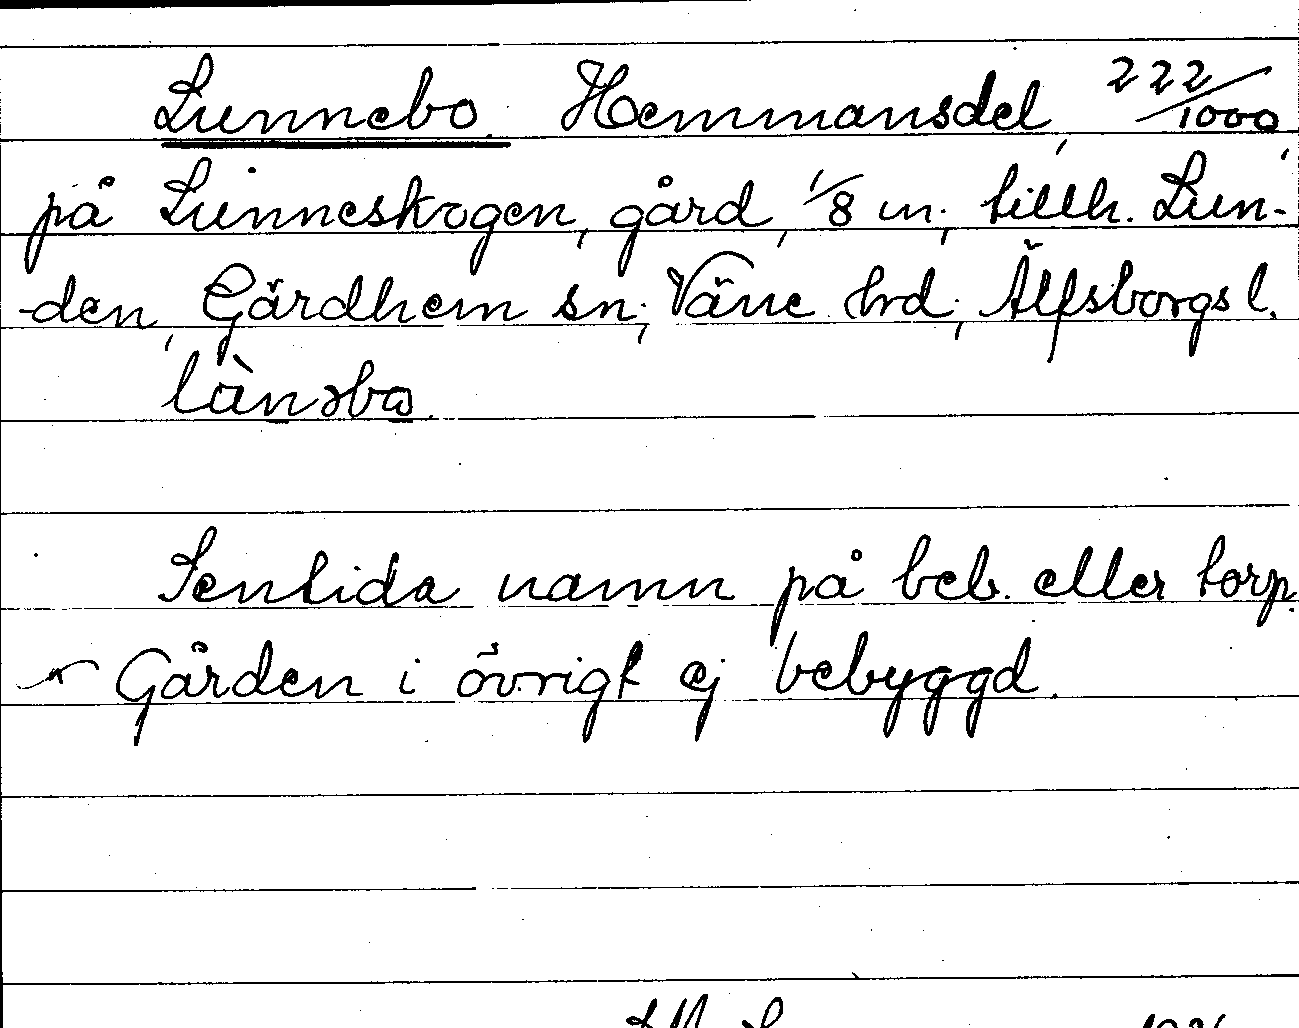 Lunnebo. Hemmansdel, 222/1000,
på Lunneskogen, gård, 1/8 m., tillh. Lun-
den, Gärdhem sn., Väne hd., Älfsborgs l.
Sentida namn på beb. eller torp.
Gården i övrigt ej bebyggd.